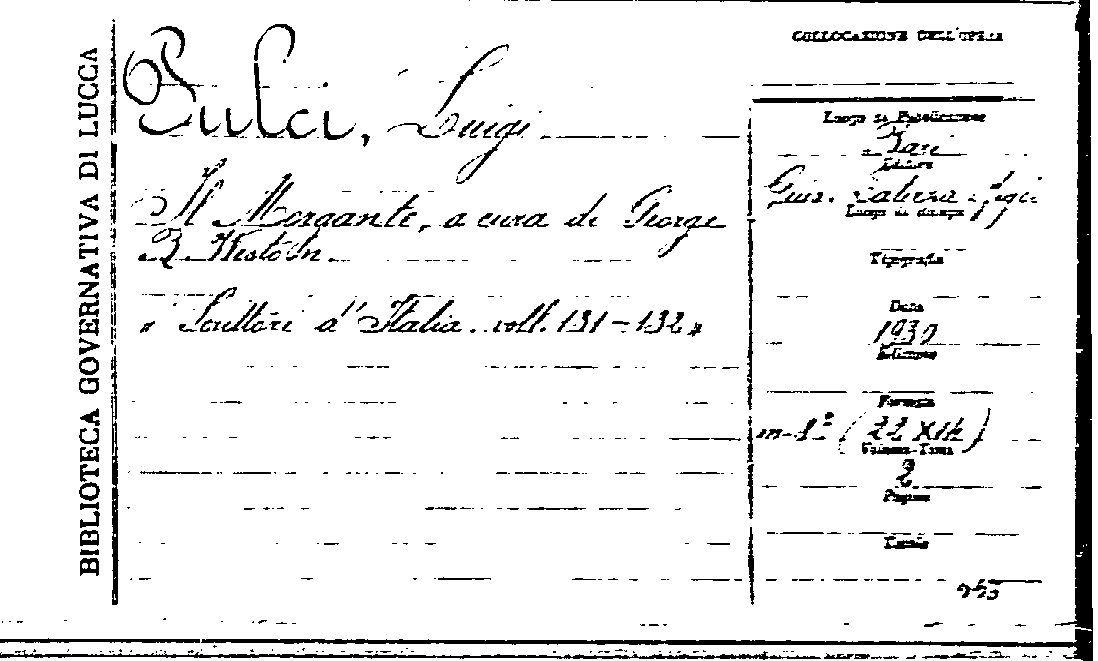 BIBLIOTECA GOVERNATIVA DI LUCCA
Pulci, Luigi
Il Morgante, a cura di George
B. Weston
"Scrittori d'Italia. voll. 131-132"
COLLOCAZIONE DELL'OPERA
Luogo di Pubblicazione
Bari
Editore
Gius. Laterza e figli
Luogo di stampa
Tipografia
Data
1930
Edizione
Formato
m-8° (22 X14)
Volume-Tomo
2
Pagine
Tavole